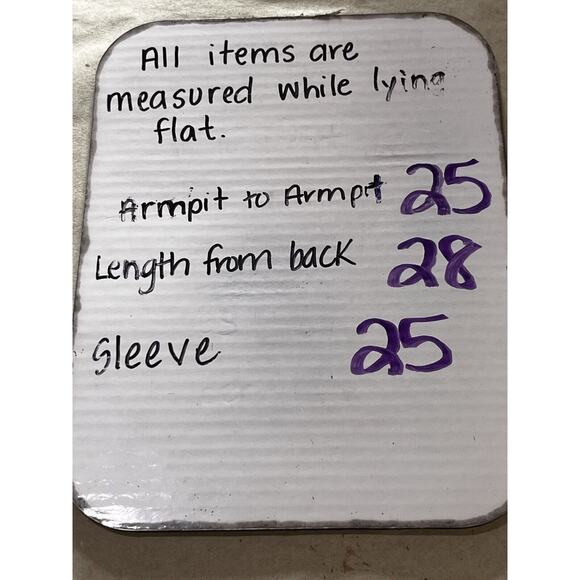 All items are
measured while lying
flat.
Armpit to Armpit 25
Length from back 28
Sleeve 25